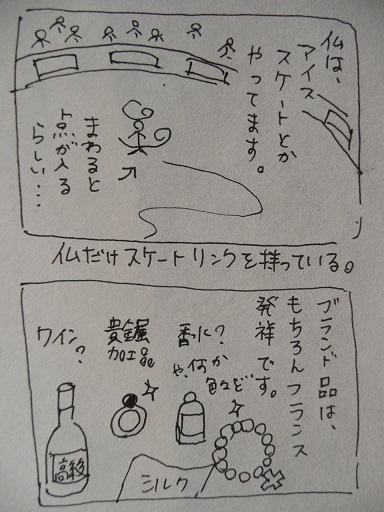 仏は、
アイス
スケートとか
やってます。
まわると
点が入る
らしい…
仏だけスケートリンクを持っている。
ブランド品は、
もちろんフランス
発祥です。
香水?
や、何か
色々ど
貴金属
加工品
ワイン?
高級
シルク